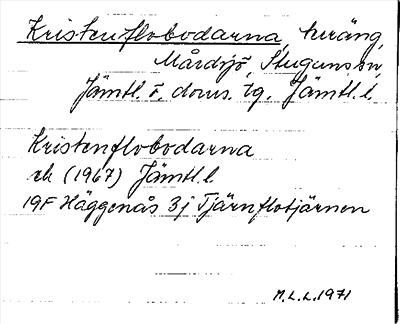 Kristenflobodarna, turäng,
Mårdsjö, Stuguns sn,
Jämtl. ö. doms. tg. Jämtl. l.
Kristenflobodarna
ek (1967) Jämtl. l
19F Häggenås 3j Tjärnflotjärnen
M.L.L. 1971